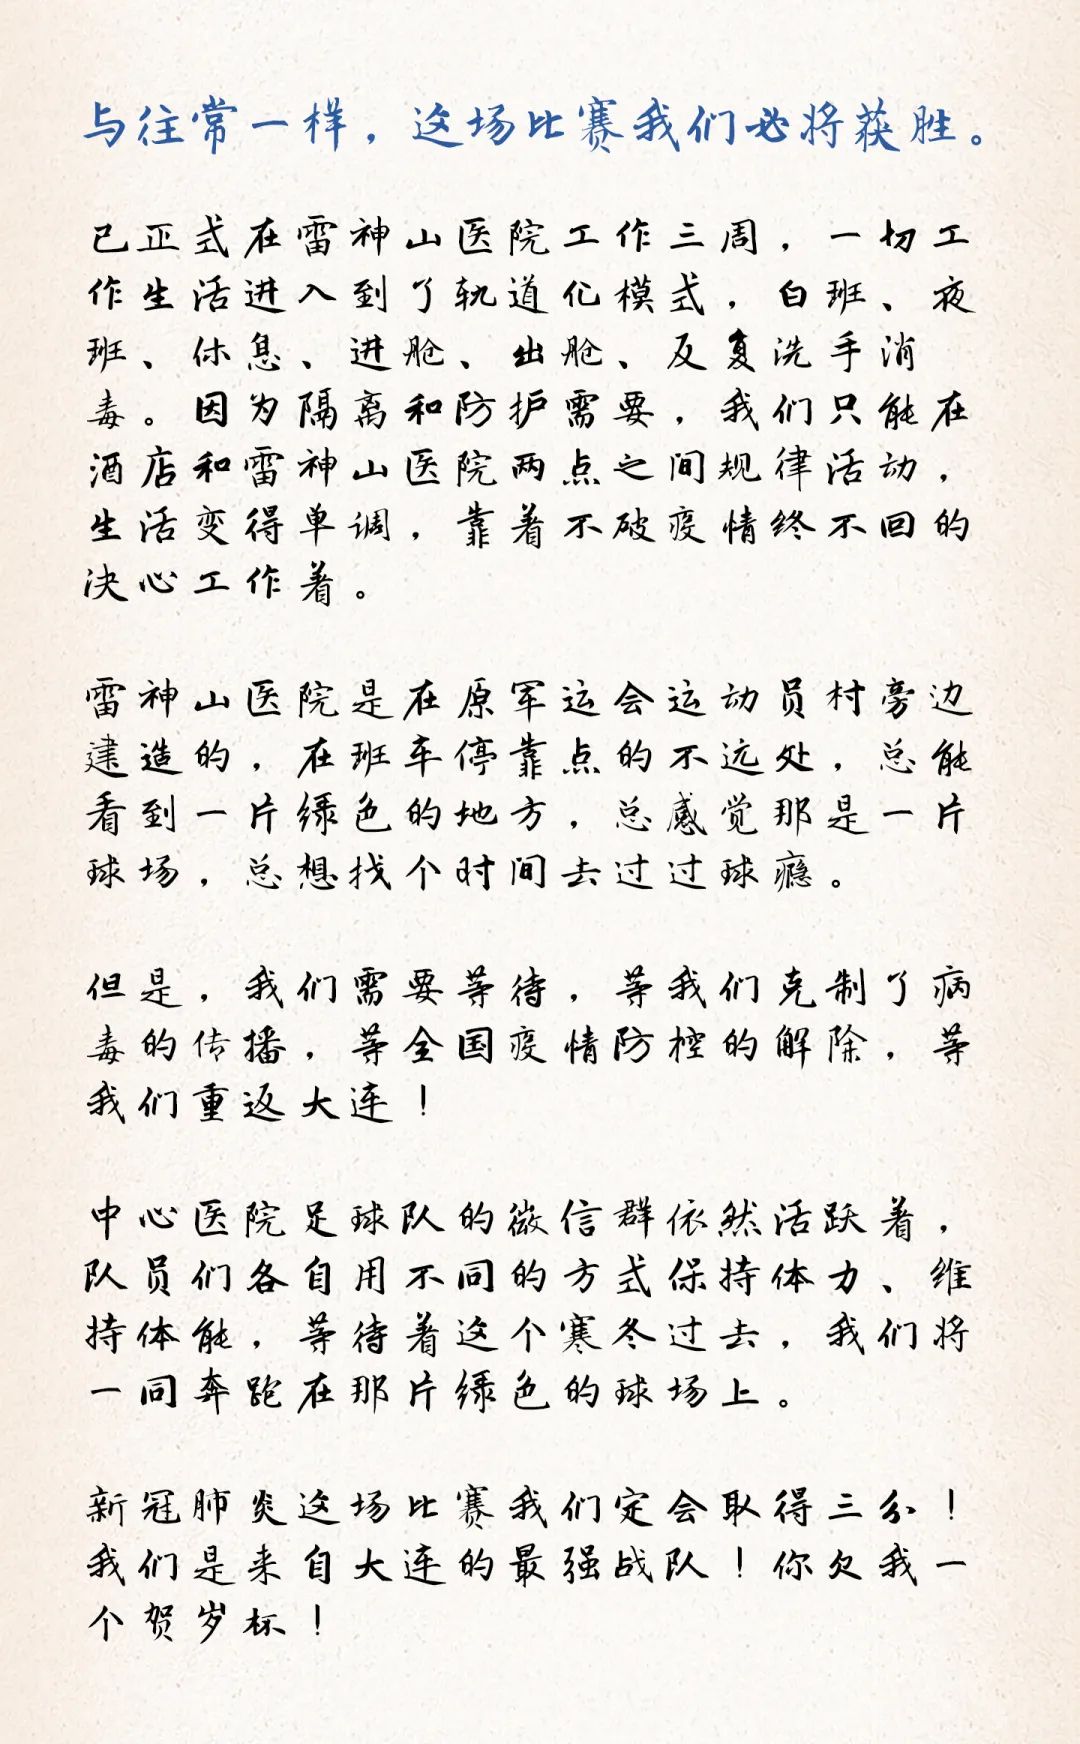 与往常一样，这场比赛我们必将获胜。
已正式在雷神山医院工作三周，一切工
作生活进入到了轨道化模式，白班、夜
班、休息、进舱、出舱、反复洗手消
毒。因为隔离和防护需要，我们只能在
酒店和雷神山医院两点之间规律活动，
生活变得单调，靠着不破疫情终不回的
决心工作着。
雷神山医院是在原军运会运动员村旁边
建造的，在班车停靠点的不远处，总能
看到一片绿色的地方，总感觉那是一片
球场，总想找个时间去过过球瘾。
但是，我们需要等待，等我们克制了病
毒的传播，等全国疫情防控的解除，等
我们重返大连！
中心医院足球队的微信群依然活跃着，
队员们各自用不同的方式保持体力、维
持体能，等待着这个寒冬过去，我们将
一同奔跑在那片绿色的球场上。
新冠肺炎这场比赛我们定会取得三分！
我们是来自大连的最强战队！你欠我一
个贺岁杯！